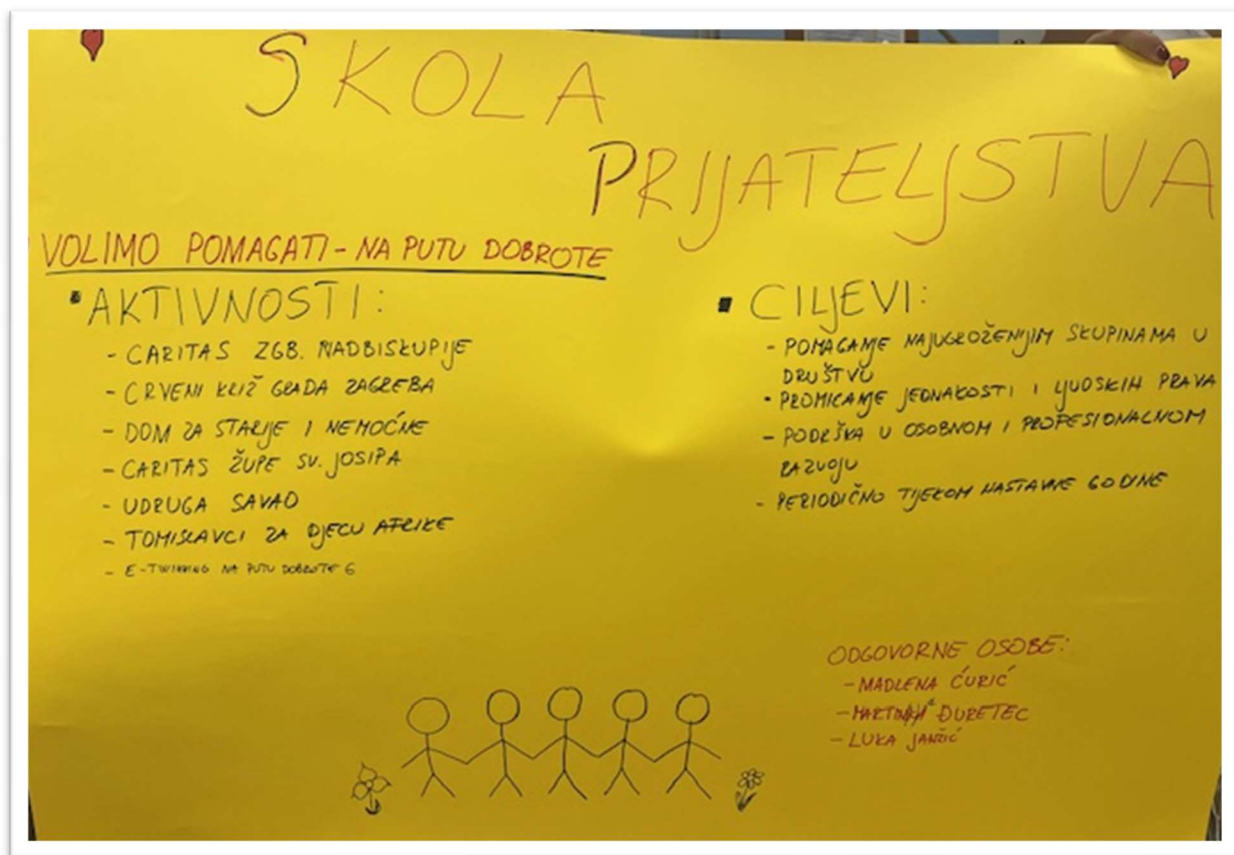 ŠKOLA
PRIJATELJSTVA
VOLIMO POMAGATI - NA PUTU DOBROTE
▪ AKTIVNOSTI:
- CARITAS ZGB. NADBISKUPIJE
- CRVENI KRIŽ GRADA ZAGREBA
- DOM ZA STARIJE I NEMOĆNE
- CARITAS ŽUPE SV. JOSIPA
- UDRUGA SAVAO
- TOMISLAVCI ZA DJECU AFRIKE
- E-TWINNING NA PUTU DOBROTE 6
▪ CILJEVI:
- POMAGANJE NAJUGROŽENIJIM SKUPINAMA U
DRUŠTVU
- PROMICANJE JEDNAKOSTI I LJUDSKIH PRAVA
- PODRŠKA U OSOBNOM I PROFESIONALNOM
RAZVOJU
- PERIODIČNO TIJEKOM NASTAVNE GODINE
ODGOVORNE OSOBE:
- MADLENA ĆURIĆ
- ĐURETEC
- LUKA JANŽIĆ